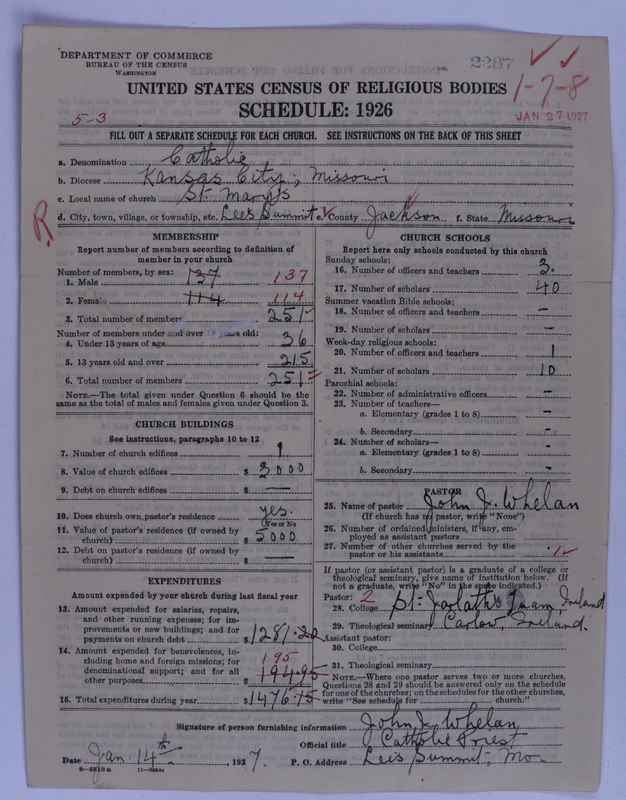 DEPARTMENT OF COMMERCE
BUREAU OF THE CENSUS
WASHINGTON
2287
1-7-8
JAN 27 1927
UNITED STATES CENSUS OF RELIGIOUS BODIES
SCHEDULE: 1926
5-3
FILL OUT A SEPARATE SCHEDULE FOR EACH CHURCH. SEE INSTRUCTIONS ON THE BACK OF THIS SHEET
a. Denomination Catholic
b. Diocese Kansas City, Missouri
c. Local name of church St. Mary's
d. City, town, village, or township, etc. Lee's Summit e. County Jackson f. State Missouri
R
MEMBERSHIP
Report number of members according to definition of
member in your church
Number of members, by sex:
1. Male 137 137
2. Female 114 114
3. Total number of members 251
Number of members under and over 13 years old:
4. Under 13 years of age 36
5. 13 years old and over 215
6. Total number of members 251
NOTE.—The total given under Question 6 should be the
same as the total of males and females given under Question 3.
CHURCH BUILDINGS
See instructions, paragraphs 10 to 12
7. Number of church edifices 1
8. Value of church edifices $ 3000
9. Debt on church edifices $ —
10. Does church own pastor's residence yes.
(Yes or No)
11. Value of pastor's residence (if owned by
church) $ 5000
12. Debt on pastor's residence (if owned by
church) $ —
EXPENDITURES
Amount expended by your church during last fiscal year
13. Amount expended for salaries, repairs,
and other running expenses; for im-
provements or new buildings; and for
payments on church debt $ 1281.20
14. Amount expended for benevolences, in-
cluding home and foreign missions; for
denominational support; and for all
other purposes 195 194.95
15. Total expenditures during year $ 1476.15
CHURCH SCHOOLS
Report here only schools conducted by this church
Sunday schools:
16. Number of officers and teachers 3.
17. Number of scholars 40
Summer vacation Bible schools:
18. Number of officers and teachers —
19. Number of scholars —
Week-day religious schools:
20. Number of officers and teachers 1
21. Number of scholars 10
Parochial schools:
22. Number of administrative officers —
23. Number of teachers—
a. Elementary (grades 1 to 8) —
b. Secondary —
24. Number of scholars—
a. Elementary (grades 1 to 8) —
b. Secondary —
PASTOR
25. Name of pastor John J. Whelan
(If church has no pastor, write "None")
26. Number of ordained ministers, if any, em-
ployed as assistant pastors
27. Number of other churches served by the
pastor or his assistants 1
If pastor (or assistant pastor) is a graduate of a college or
theological seminary, give name of institution below. (If
not a graduate, write "No" in the space indicated.)
Pastor: 2
28. College St. Jarlath's Tuam, Ireland
29. Theological seminary Carlow, Ireland.
Assistant pastor:
30. College
31. Theological seminary
NOTE.—Where one pastor serves two or more churches,
Questions 28 and 29 should be answered only on the schedule
for one of the churches; on the schedules for the other churches,
write "See schedule for church."
Signature of person furnishing information John J. Whelan
Official title Catholic Priest
Date Jan 14th, 1927. P. O. Address Lee's Summit, Mo.